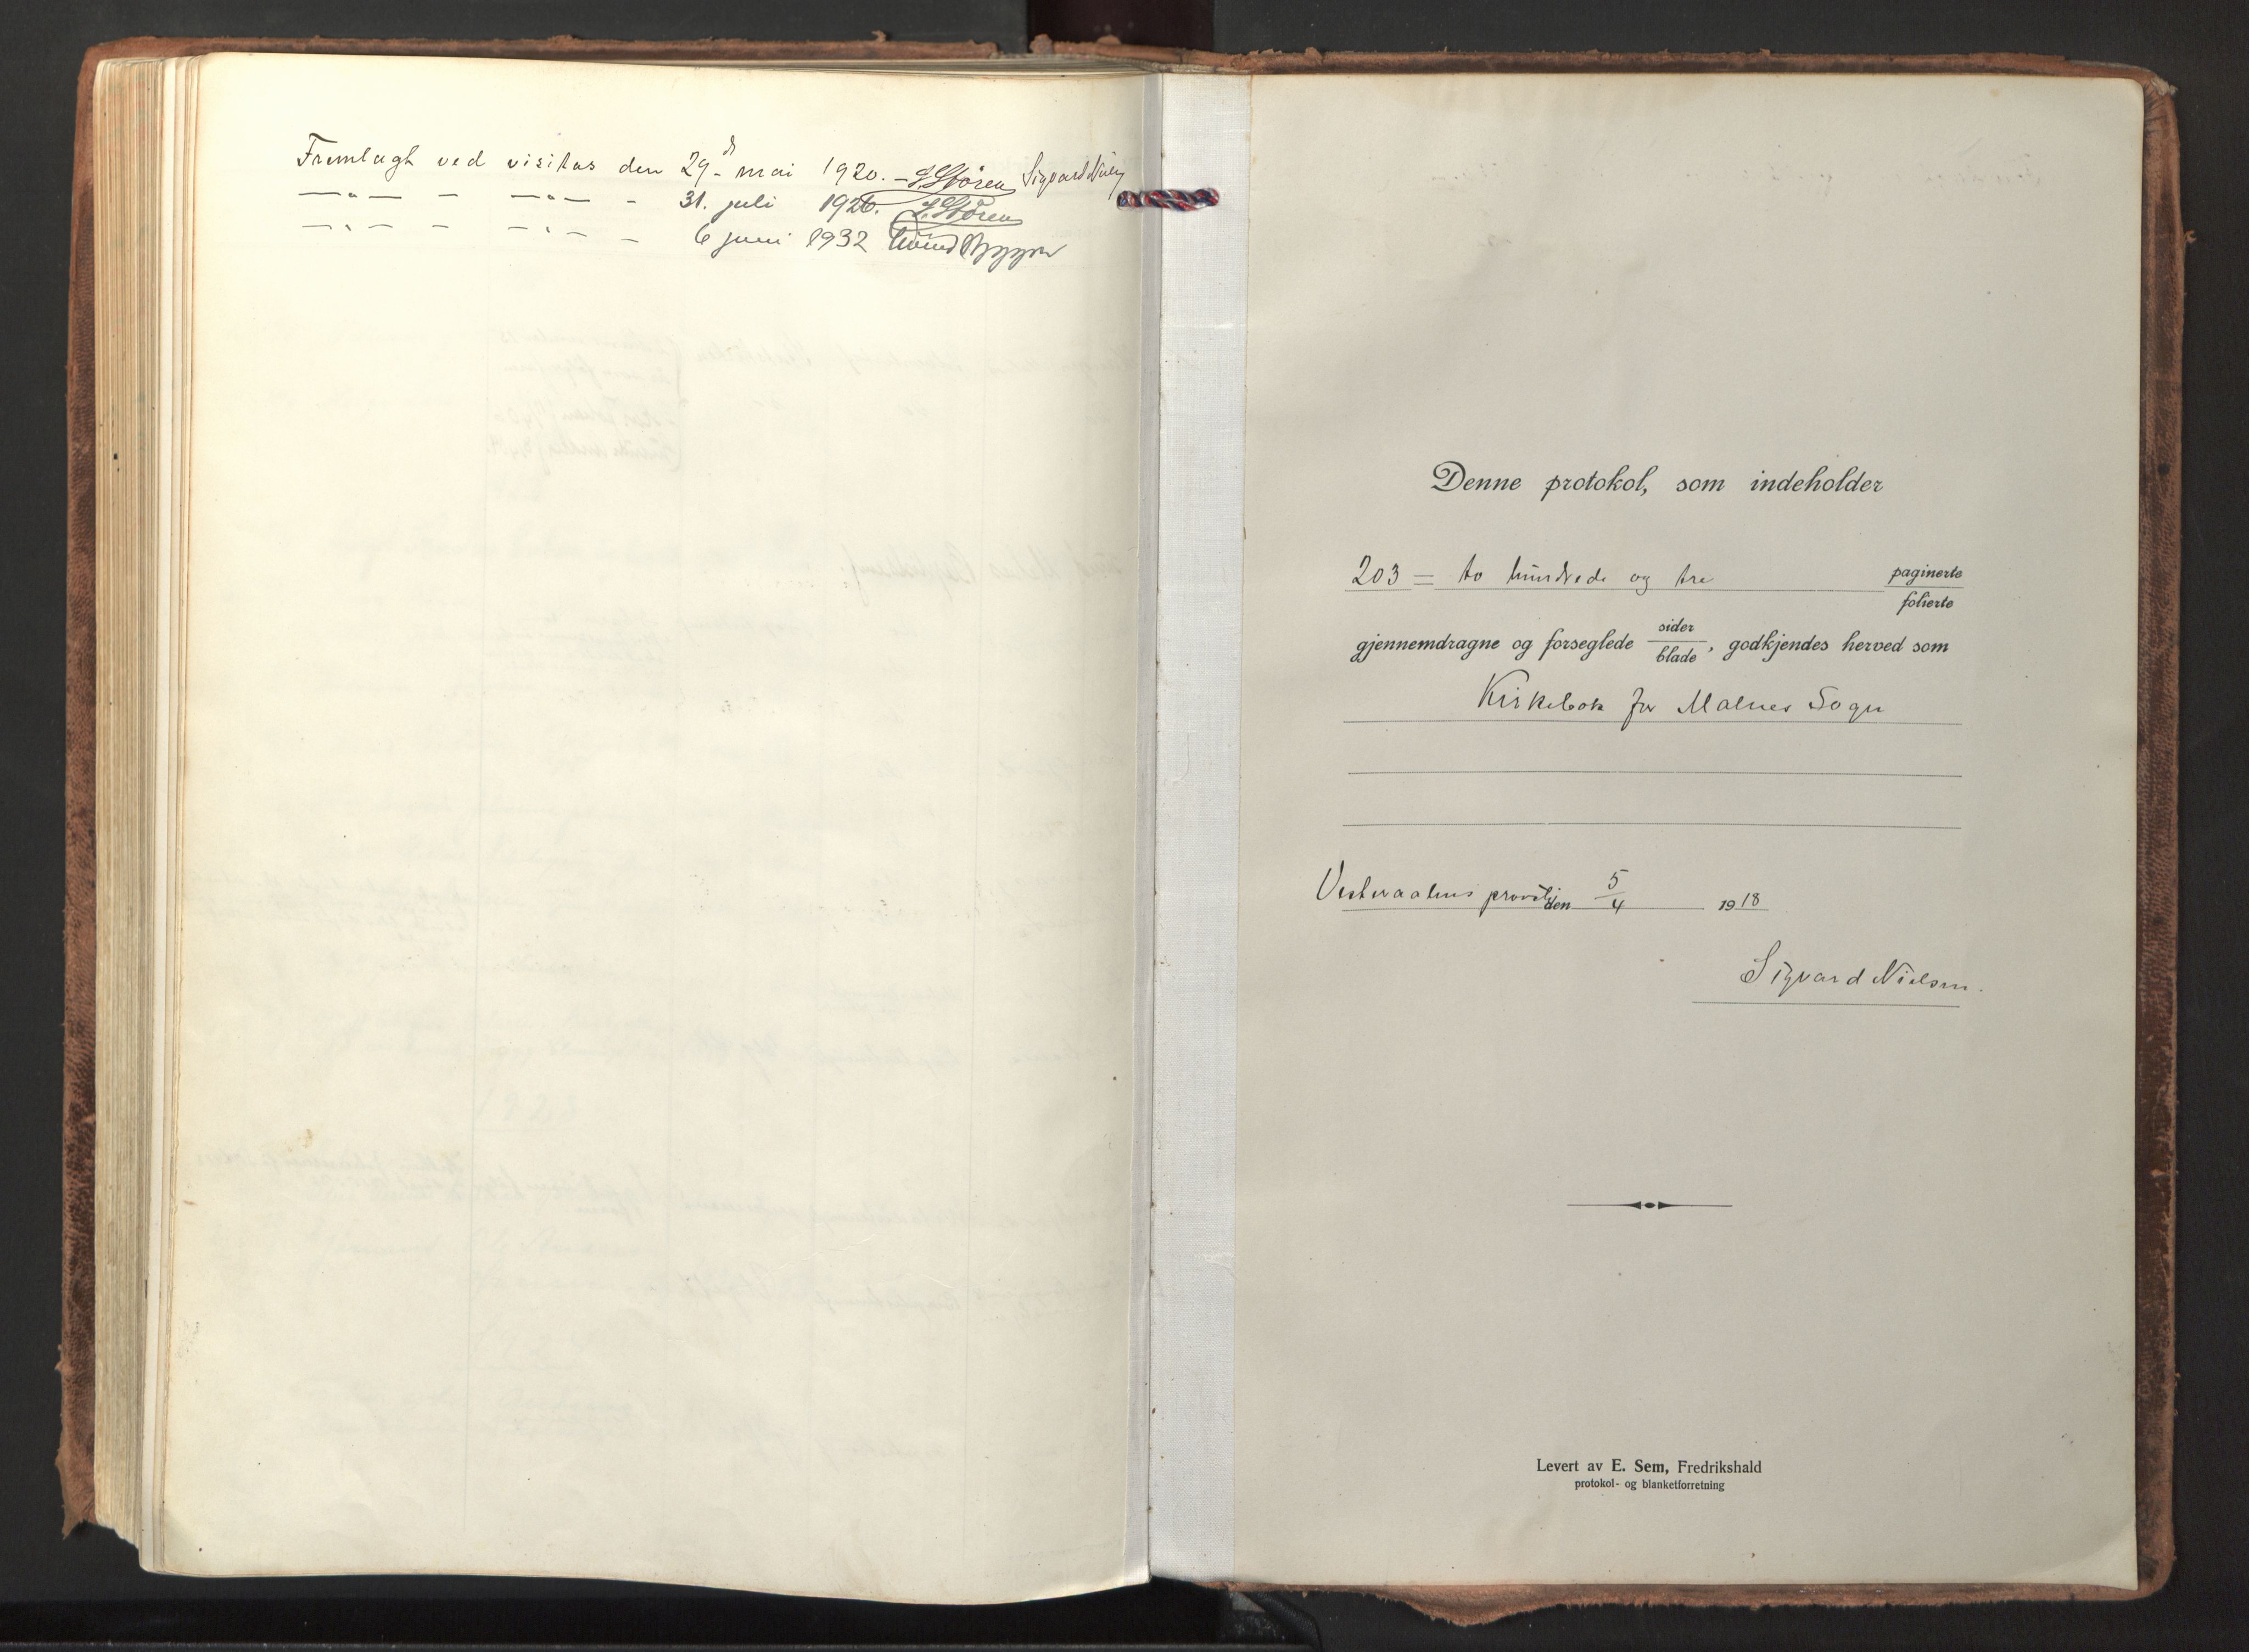 Fremlagt ved visitas den 29de mai 1920. – J. Støren Sigvard Niels
—"— – —"— – 31. juli 1926. J. Støren
—"— – —"— – 6 juni 1932 Eivind Berggrav
Denne protokol, som indeholder
203 = to hundrede og tre paginerte
folierte
gjennemdragne og forseglede sider/blade, godkjendes herved som
Kirkebok for Malnes Sogn
Vesteraalens provsti den 5/4 1918
Sigvard Nielsen.
Levert av E. Sem, Fredrikshald
protokol- og blanketforretning